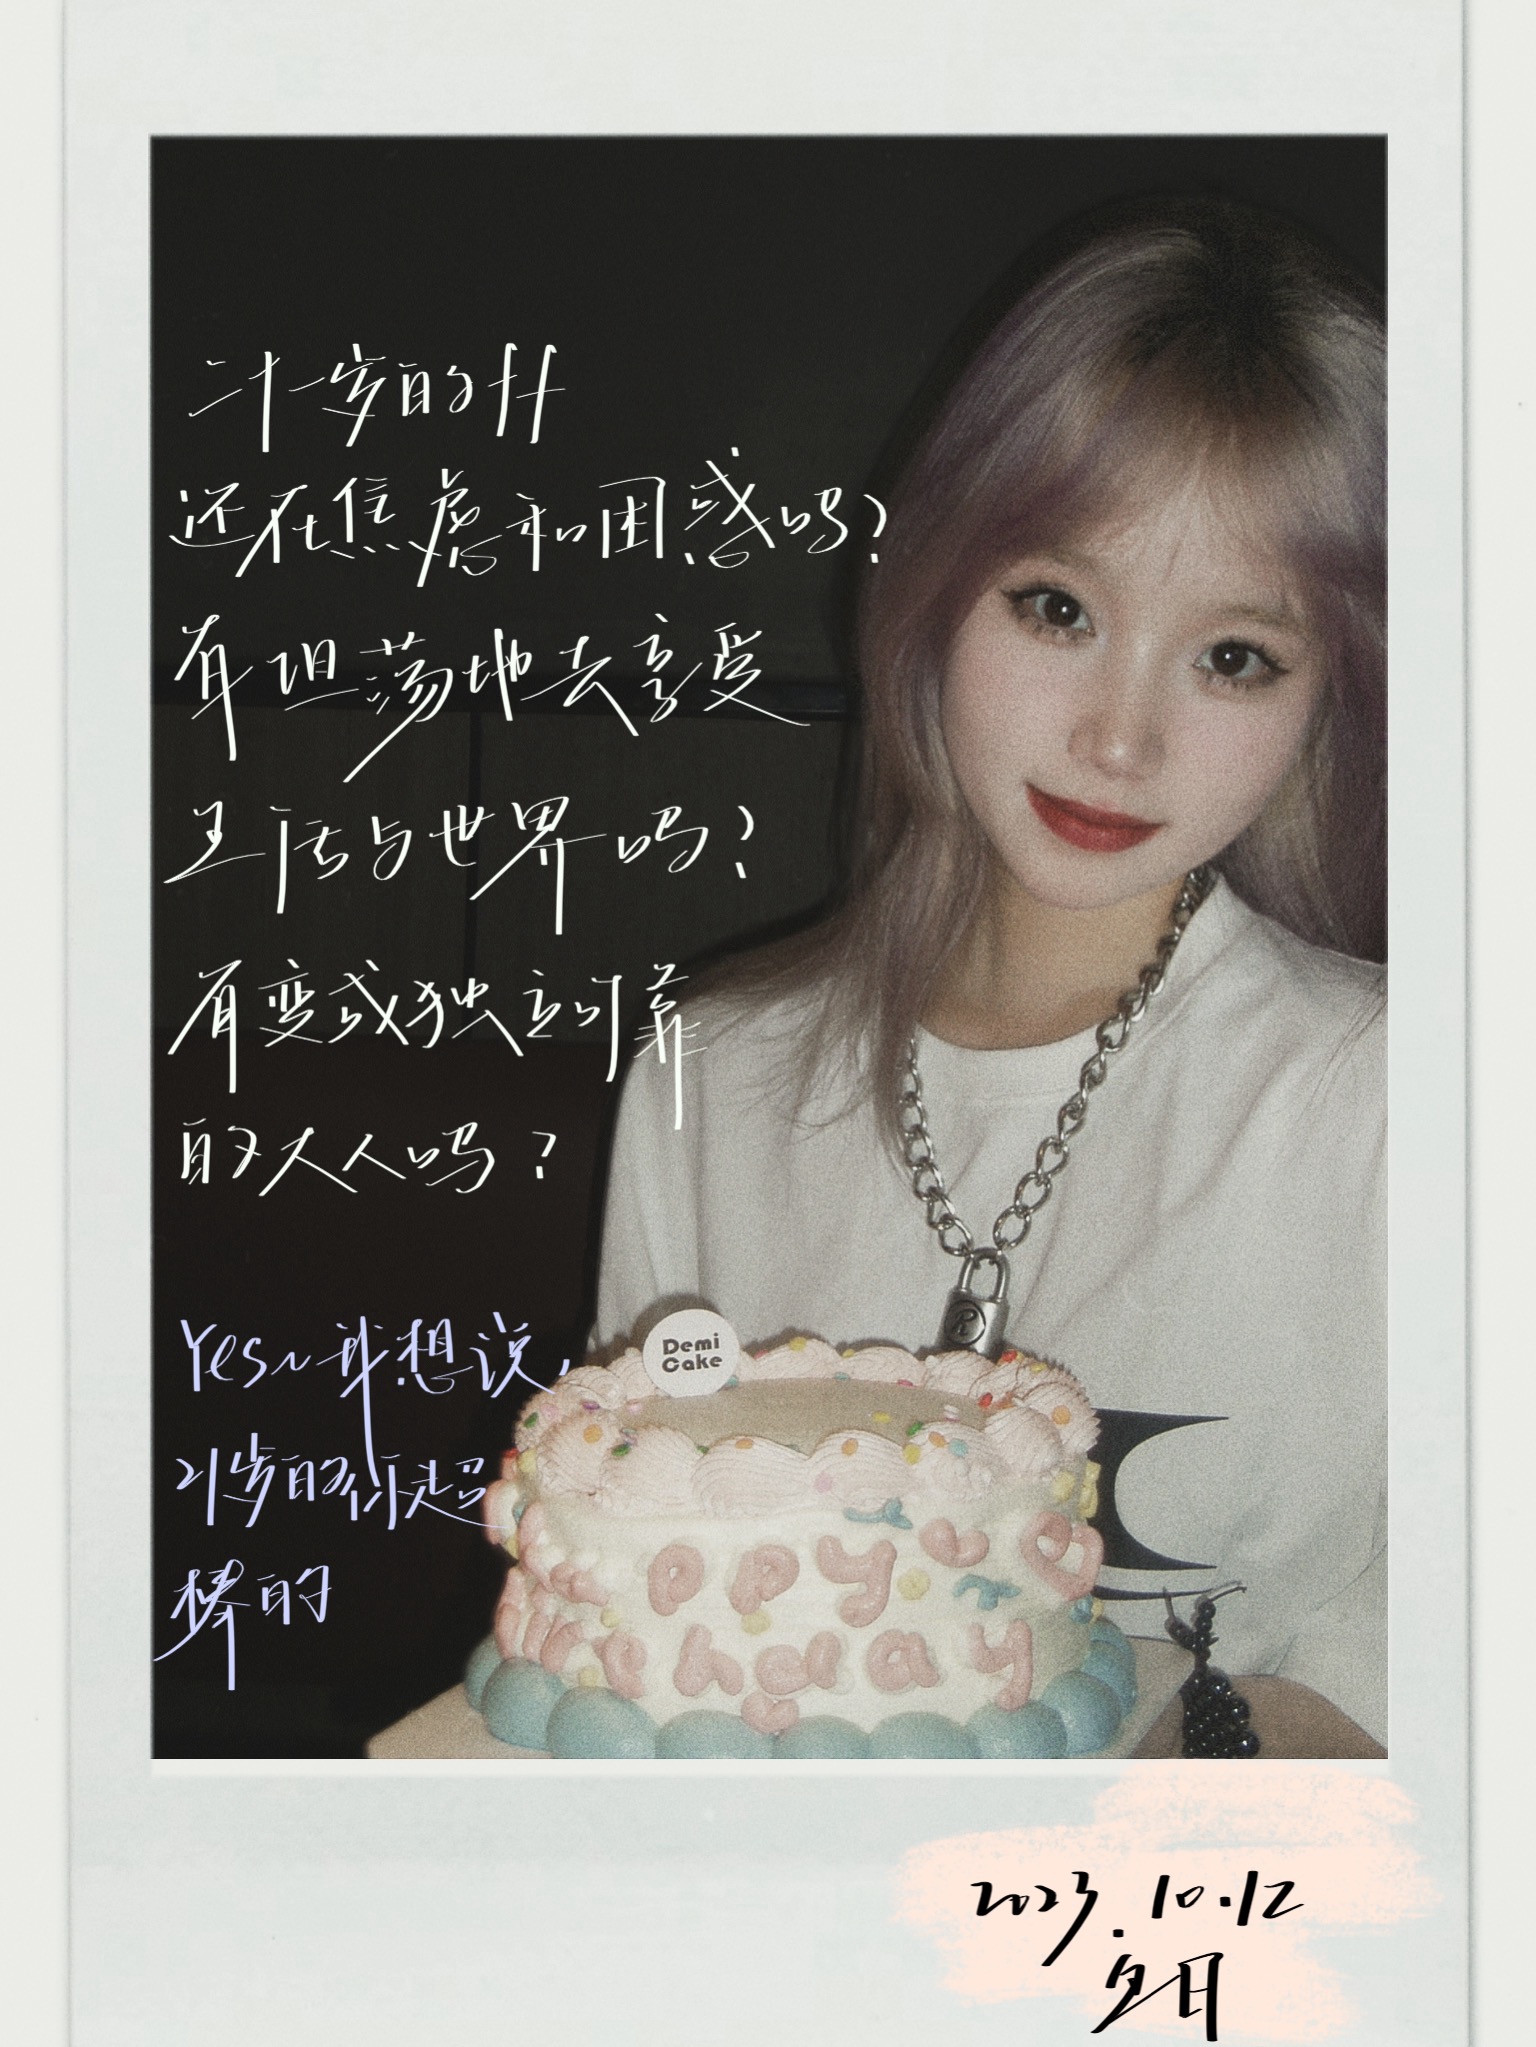 二十一岁的卄
还在焦虑和困惑吗？
有坦荡地去享受
生活与世界吗？
有变成独立可靠
的大人吗？
Yes~我想说，
21岁的你超
棒的
Demi
Cake
ppy
thday
2023.10.12
夕日